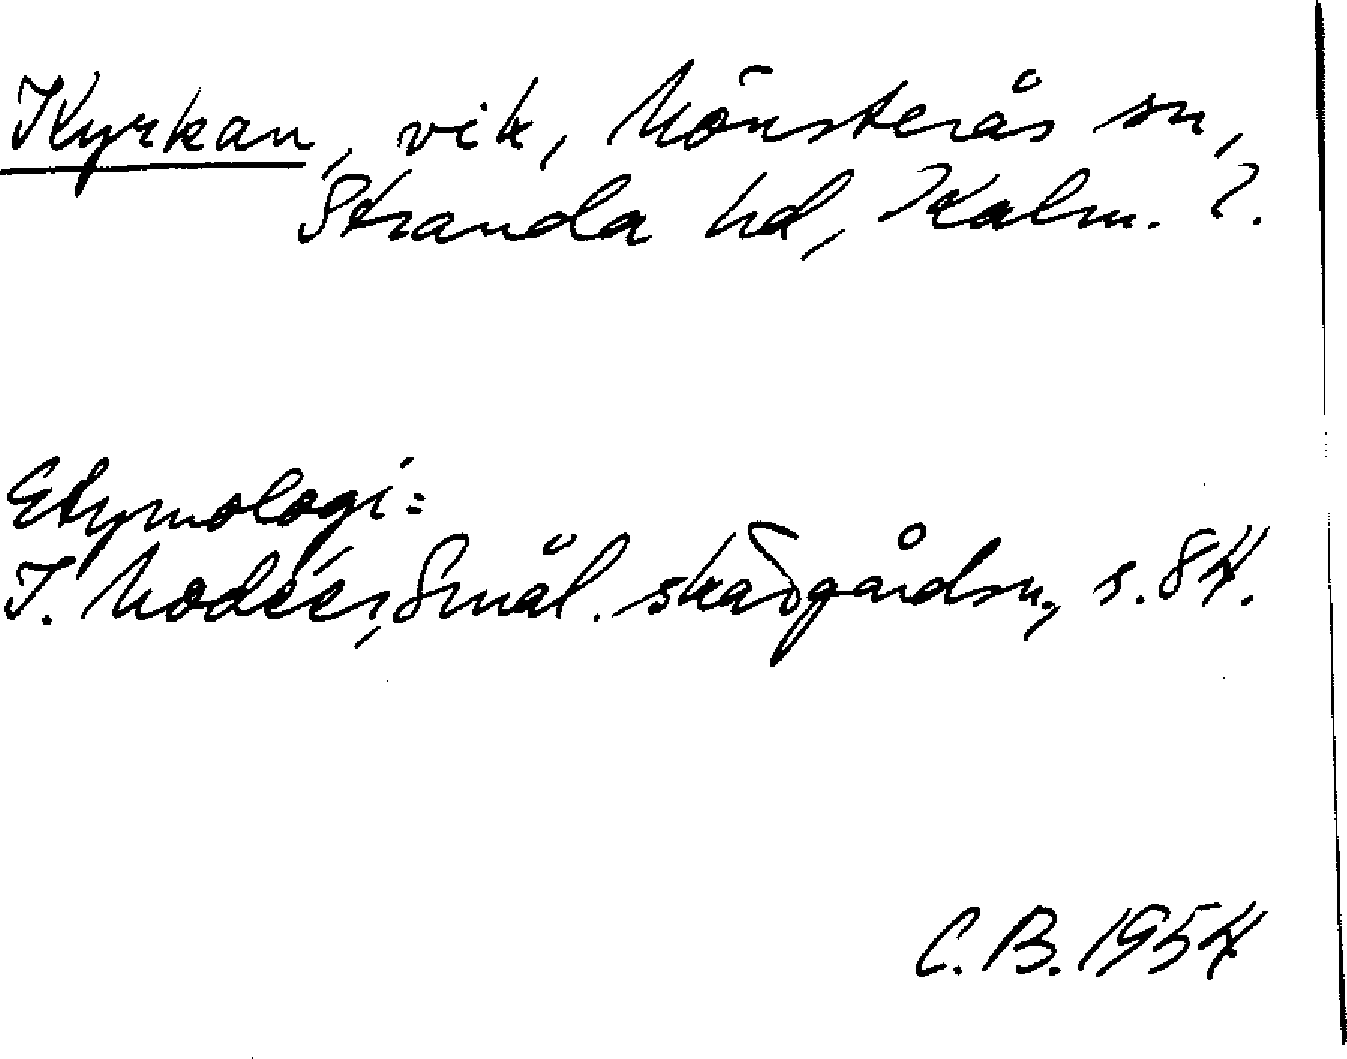 Kyrkan, vik, Mönsterås sn,
Stranda hd, Kalm. l.
Etymologi:
I. Modéer, Smål. skärgårdsn., s. 84.
C. B. 1954